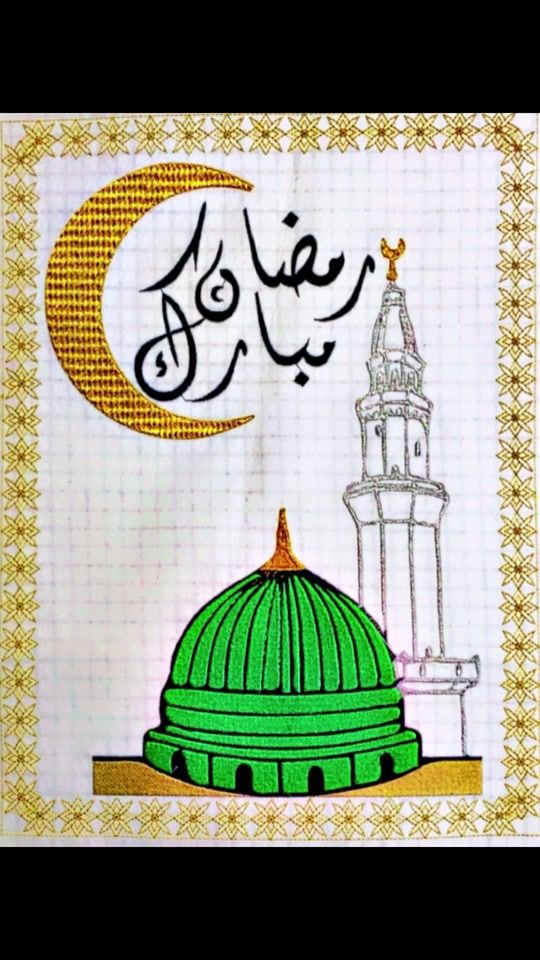 رمضان
مبارك